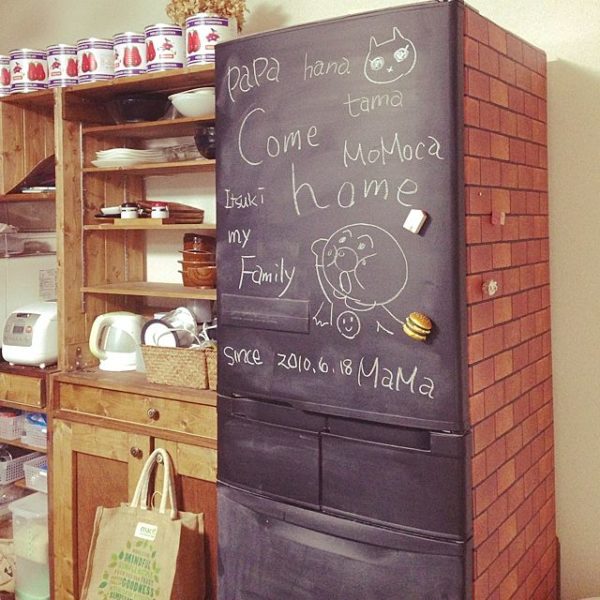 PaPa hana
tama
Come
MoMoca
Itsuki home
my
Family
since 2010.6.18 MaMa
MINDFUL
GOODNESS